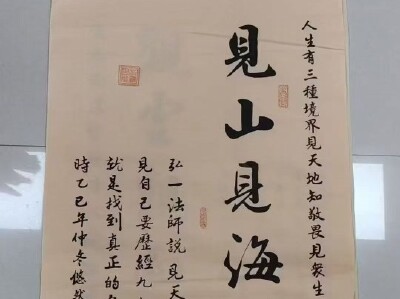 人生有三種境界見天地知敬畏見衆生
見山見海
弘一法師說見天
見自己要歷經九
就是找到真正的
時乙巳年仲冬悠然